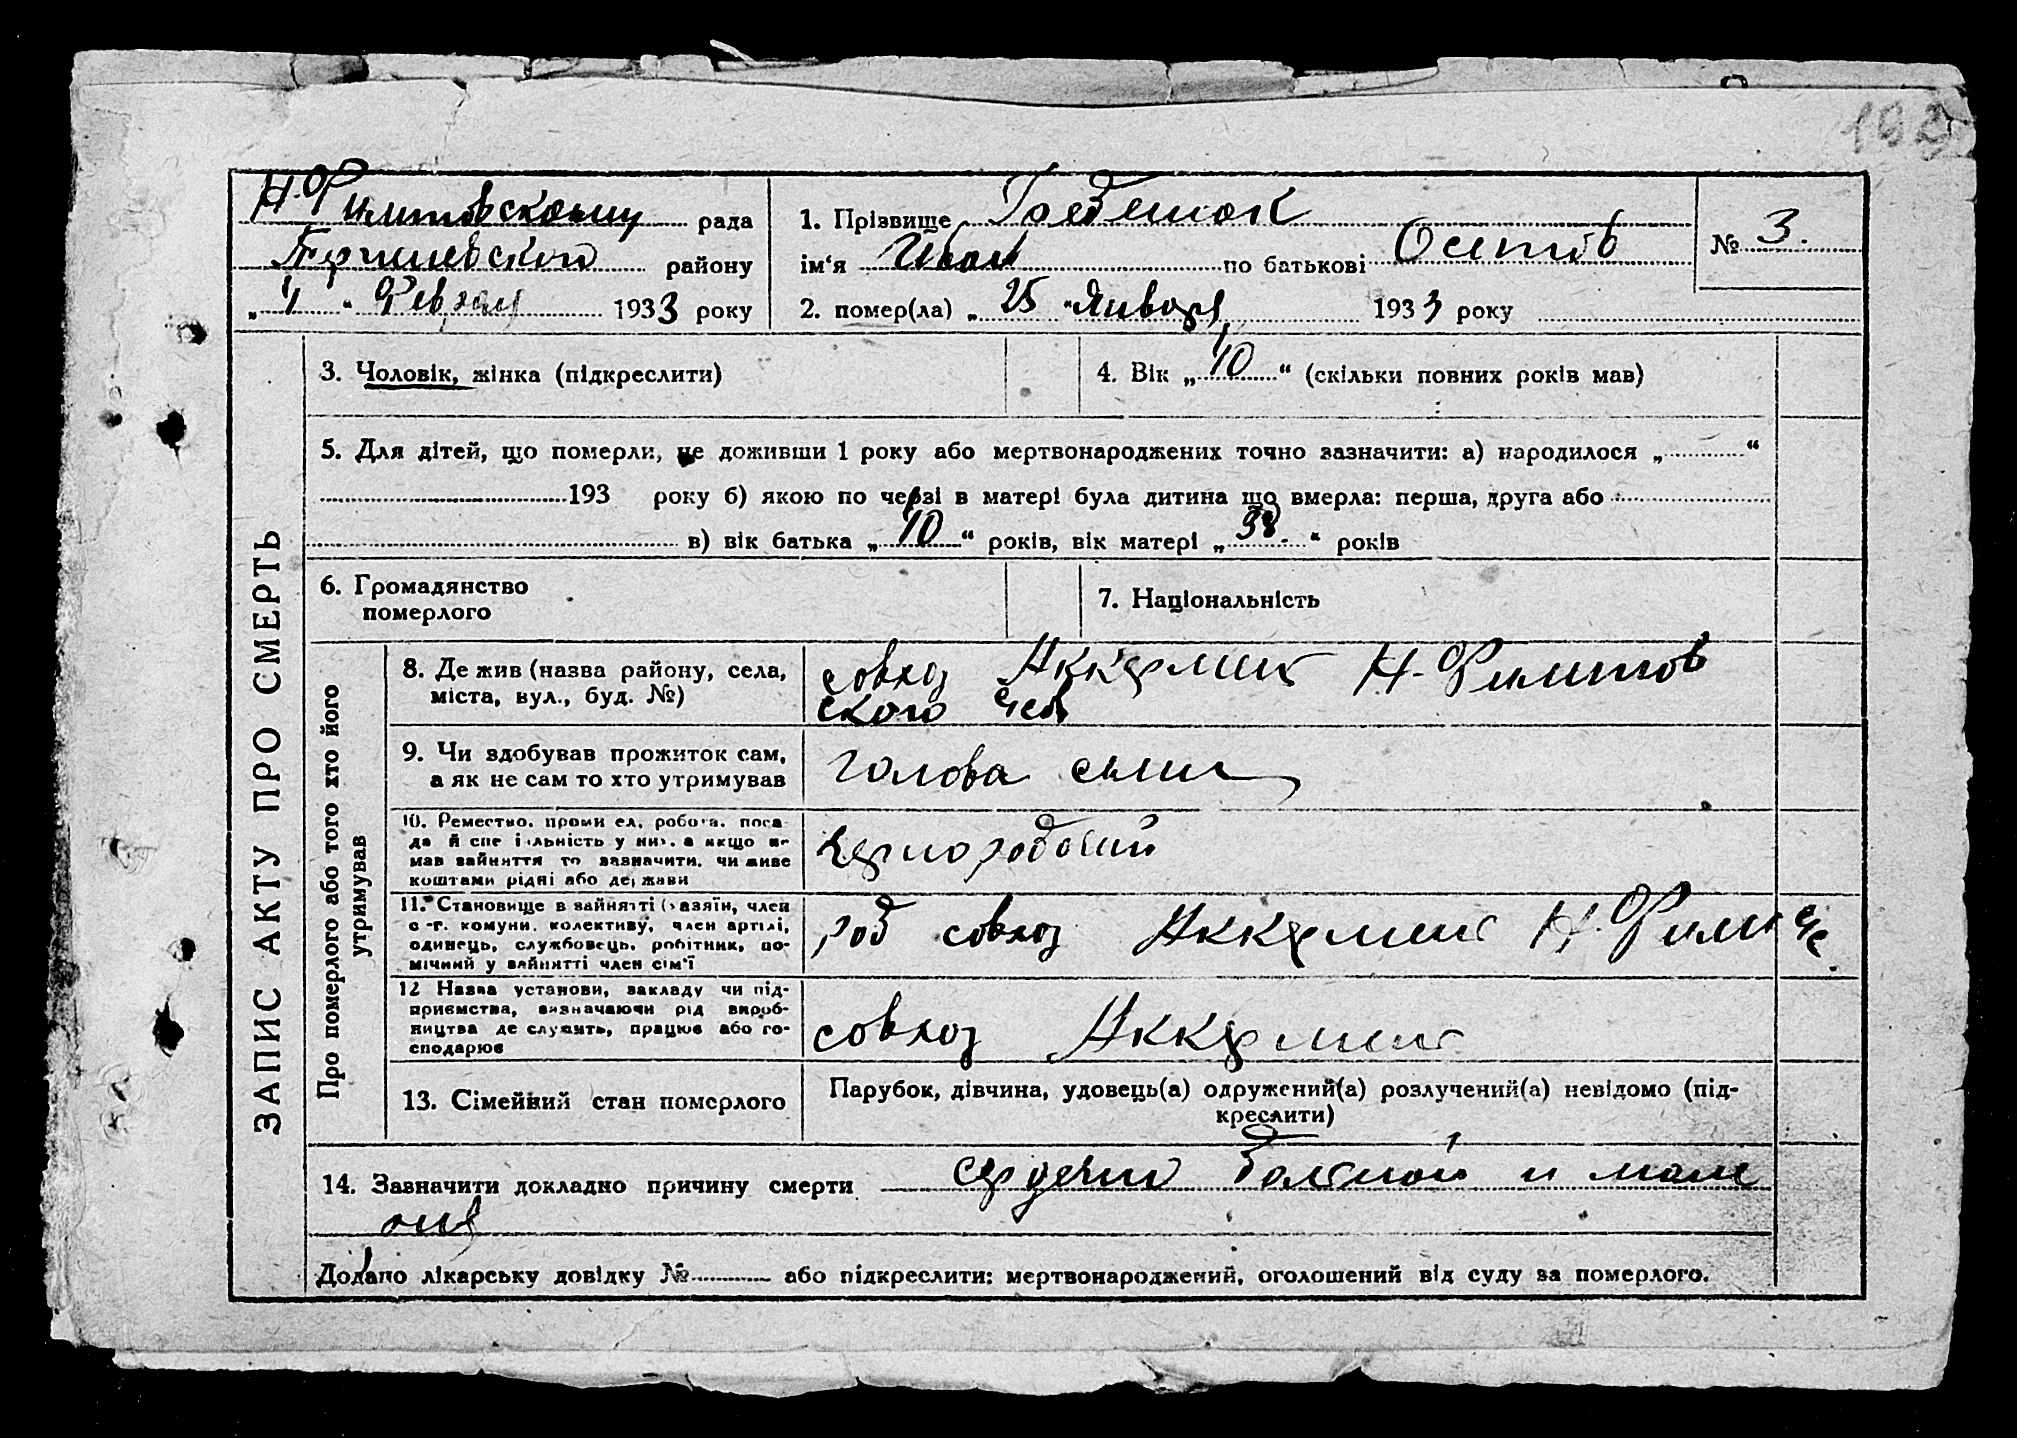 192
Н. Филиповскому рада
району
„ 4 “ Февраля 1933 року
1. Прізвище Гребенюк
ім‘я Иван по батькові Осипов
№ 3.
2. помер(ла) „ 25 “ Января 1933 року
ЗАПИС АКТУ ПРО СМЕРТЬ
3. Чоловік, жінка (підкреслити)
4. Вік „ 40 “ (скільки повних років мав)
5. Для дітей, що померли, не доживши 1 року або мертвонароджених точно зазначити: а) народилося „ “
193 року б) якою по черзі в матері була дитина що вмерла: перша, друга або
в) вік батька „ 40 “ років, вік матері „ 38. “ років
6. Громадянство
померлого
7. Національність
Про померлого або того хто його
утримував
8. Де жив (назва району, села,
міста, вул., буд. №)
совхоз Аккермень Н-Филипов
ского
9. Чи здобував прожиток сам,
а як не сам то хто утримував
голова семи
10. Ремество, промисел, робота, поса
да й спеціяльність у них, а якщо не
мав зайняття то зазначити, чи живе
коштами рідні або держави
чернорабочий
11. Становище в зайнятті (хазяїн, член
с.-г. комуни, колективу, член артілі,
одинець, службовець, робітник, по-
мічний у зайнятті член сім‘ї
раб совхоз Аккермень Н. Филип
12 Назва установи, закладу чи під-
приємства, визначаючи рід вироб-
ництва де служить, працює або го-
сподарює
совхоз Аккермень
13. Сімейний стан померлого
Парубок, дівчина, удовець(а) одружений(а) розлучений(а) невідомо (під-
креслити)
14. Зазначити докладно причину смерти
сердечно больной и мало
Додано лікарську довідку № або підкреслити: мертвонароджений, оголошений від суду за померлого.